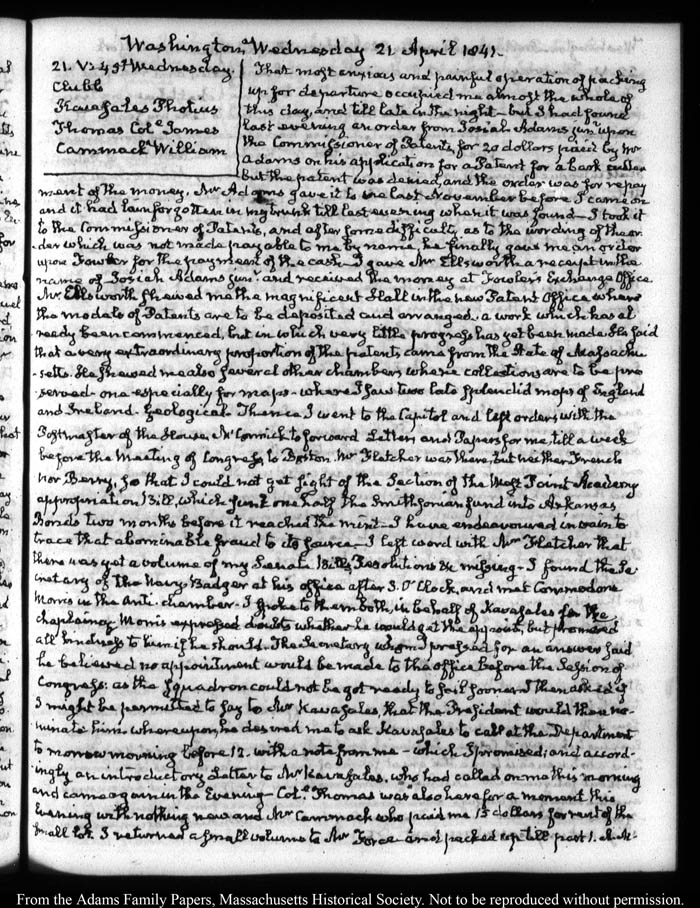 Washington, Wednesday 21 April 1841.
21. V: 45 Wednesday.
Clubb
Kavasales Photius
Thomas Col. James
Cammack William
That most anxious and painful operation of packing
up for departure occupied me almost the whole of
this day, and till late in the night— but I had found
last evening an order from Josiah Adams junr. upon
the Commissioner of Patents, for 20 dollars paid by Mr
Adams on his application for a Patent for a bark cutter
but the patent was denied, and the order was for repay
ment of the money. Mr Adams gave it to me last November before I came on
and it had lain forgotten in my trunk till last evening when it was found— I took it
to the Commissioner of Patents, and after some difficulty as to the wording of the or-
der which was not made payable to me by name, he finally gave me an order
upon Fowler for the payment of the cash— I gave Mr Ellsworth a receipt in the
name of Josiah Adams junr. and received the money at Fowler's Exchange Office.
Mr Ellsworth shewed me the magnificent Hall in the new Patent Office where
the models of Patents are to be deposited and arranged. a work which has al
ready been commenced, but in which very little progress has yet been made. He said
that a very extraordinary proportion of the patents came from the State of Massachu
-setts. He shewed me also several other chambers where collections are to be pre
served— one especially for maps— where I saw two late splendid maps of England
and Ireland— Geological. Thence I went to the Capitol and left orders with the
Postmaster of the House, McCormick to forward Letters and Papers for me, till a week
before the Meeting of Congress, to Boston. Mr Fletcher was there, but neither French
nor Berry, so that I could not get sight of the Section of the West Point Academy
appropriation Bill, which sunk one half the Smithsonian fund into Arkansas
Bonds two months before it reached the mint— I have endeavoured in vain to
trace that abominable fraud to its source.— I left word with Mr Fletcher that
there was yet a volume of my Senate Bills, Resolutions &c missing— I found the Se
cretary of the Navy Badger at his office after 3. O'Clock, and met Commodore
Morris in the Anti-chamber— I spoke to them both, in behalf of Kavasales for the
chaplaincy. Morris expressed doubts whether he would get the appoint, but promised
all kindness to him if he should. The Secretary whom I pressed for an answer said
he believed no appointment would be made to the office before the Session of
Congress: as the Squadron could not be got ready to sail sooner. I then asked if
I might be permitted to say to Mr Kavasales, that the President would then no-
minate him, whereupon he desired me to ask Kavasales to call at the Department
to morrow morning before 12. with a note from me— which I promised; and accord-
ingly an introductory Letter to Mr Kavasales, who had called on me this morning
and came again in the Evening— Col. Thomas was also here for a moment this
Evening with nothing new and Mr Cammack who paid me 15 dollars for rent of the
small lot. I returned a small volume to Mr Force and packed up till past 1. A.M.
From the Adams Family Papers, Massachusetts Historical Society. Not to be reproduced without permission.